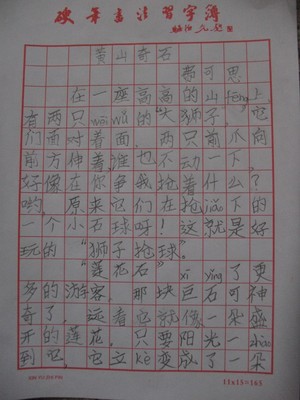 硬筆書法習字簿
黄山奇石
可思
在一座高高的山fēng上，
有两只wēi wǔ的大狮子，它
们面对着面，两只前爪向
前方伸着，谁也不动一下，
好像在你争我抢着什么？
哟，原来它们在抢jiǎo下的
一个小石球呀！这就是好
玩的“狮子抢球”。
“莲花石”xī yǐng了更
多的游客，那块巨石可神
奇了，远看它就像一朵盛
开的莲花，只要阳光一zhào
到它，它立kè变成了一朵
11x15=165